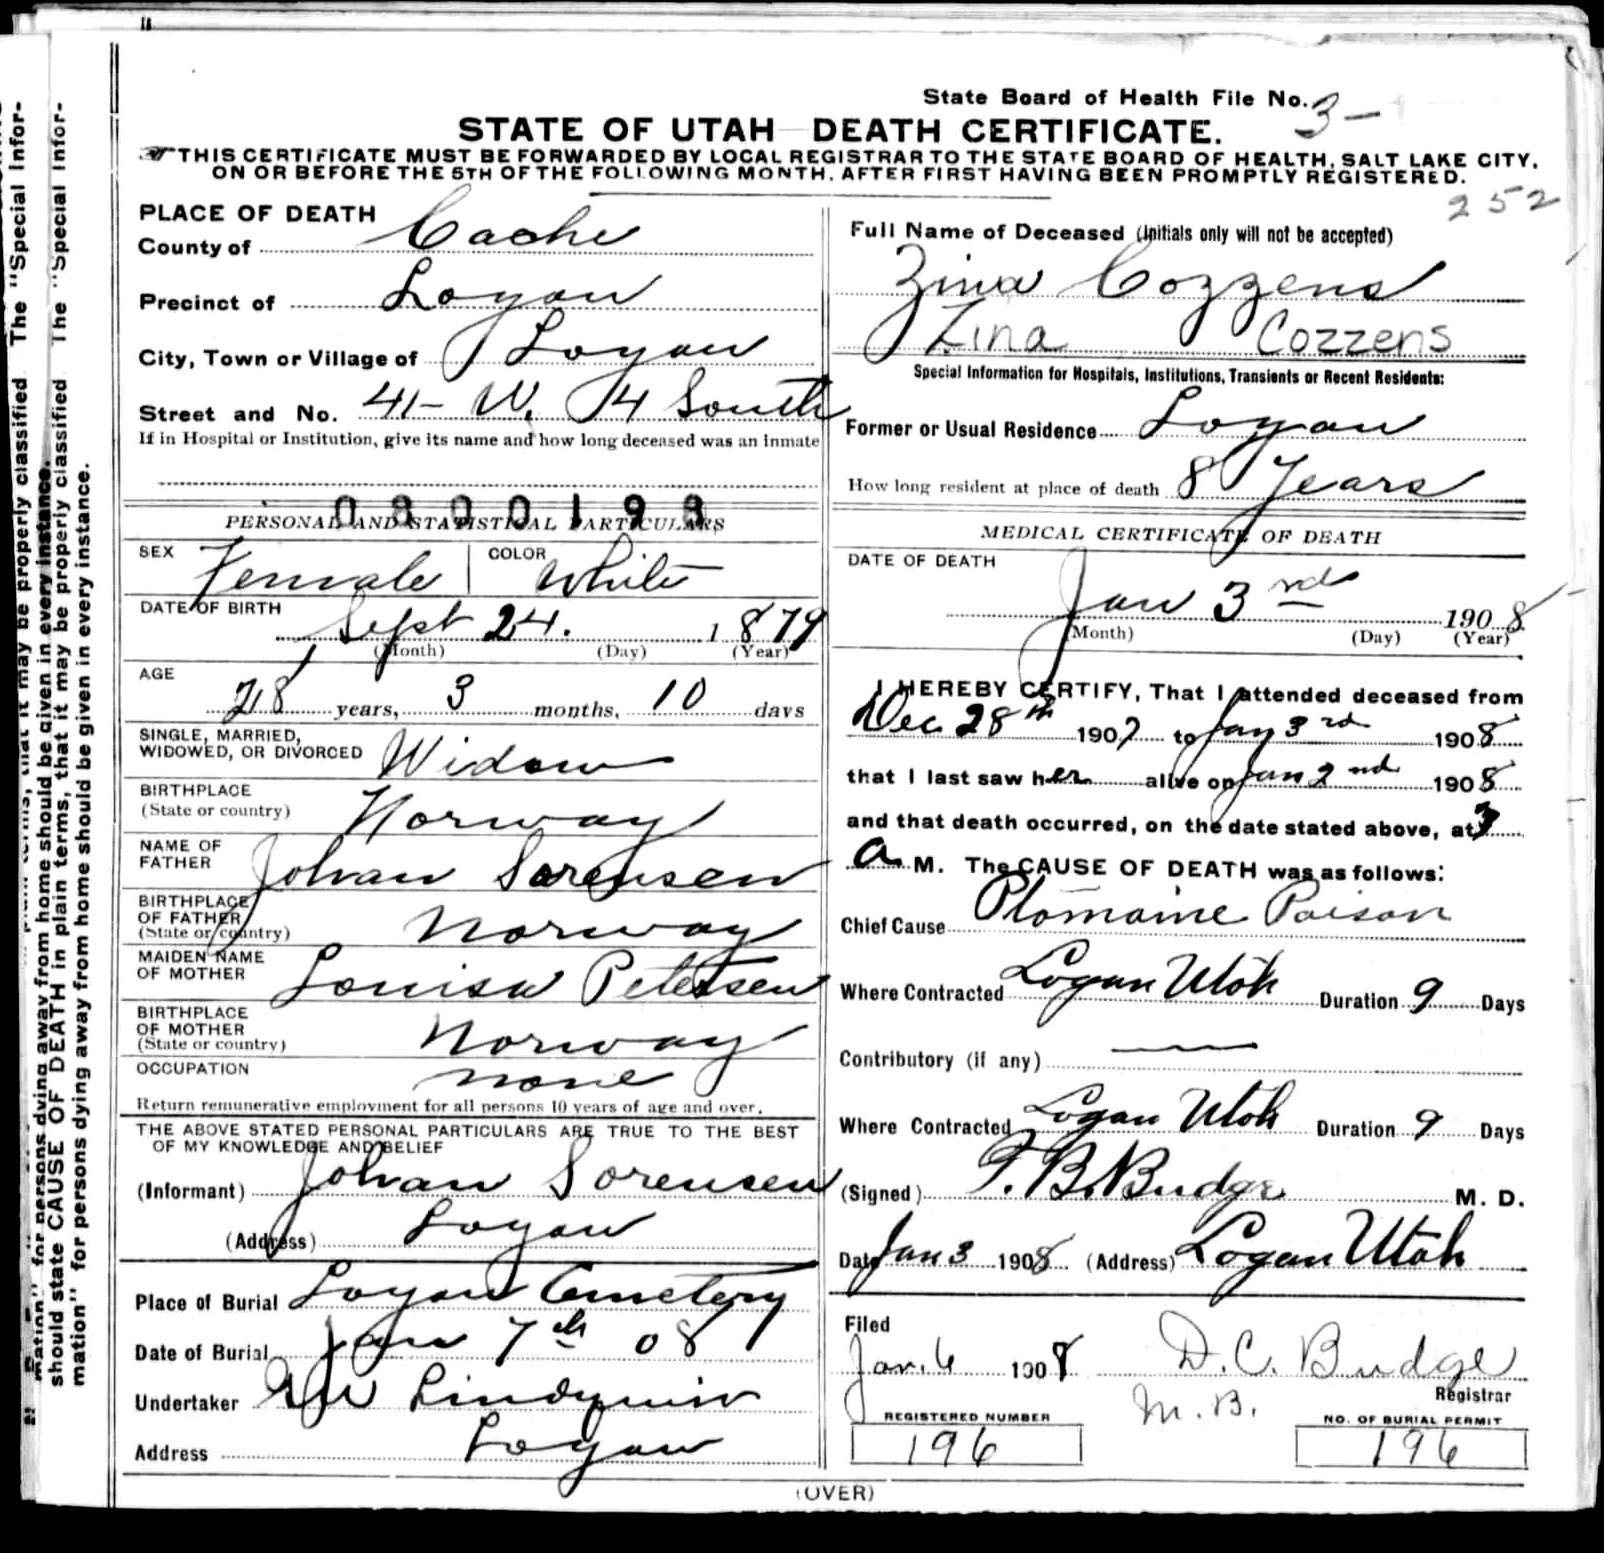 State Board of Health File No. 3-
STATE OF UTAH DEATH CERTIFICATE.
THIS CERTIFICATE MUST BE FORWARDED BY LOCAL REGISTRAR TO THE STATE BOARD OF HEALTH, SALT LAKE CITY,
ON OR BEFORE THE 5TH OF THE FOLLOWING MONTH, AFTER FIRST HAVING BEEN PROMPTLY REGISTERED.
252
PLACE OF DEATH
County of Cache
Precinct of Logan
City, Town or Village of Logan
Street and No. 41- W. 4 South
If in Hospital or Institution, give its name and how long deceased was an inmate
0800193
PERSONAL AND STATISTICAL PARTICULARS
SEX Female COLOR White
DATE OF BIRTH
Sept 24. 1879
(Month) (Day) (Year)
AGE
28 years, 3 months, 10 days
SINGLE, MARRIED,
WIDOWED, OR DIVORCED Widow
BIRTHPLACE
(State or country) Norway
NAME OF
FATHER Johan Sorensen
BIRTHPLACE
OF FATHER
(State or country) Norway
MAIDEN NAME
OF MOTHER Louisa Petersen
BIRTHPLACE
OF MOTHER
(State or country) Norway
OCCUPATION none
Return remunerative employment for all persons 10 years of age and over.
THE ABOVE STATED PERSONAL PARTICULARS ARE TRUE TO THE BEST
OF MY KNOWLEDGE AND BELIEF
(Informant) Johan Sorensen
(Address) Logan
Place of Burial Logan Cemetery
Date of Burial Jan 7th 08
Undertaker Lindquist
Address Logan
Full Name of Deceased (Initials only will not be accepted)
Zina Cozzens
Zina Cozzens
Special Information for Hospitals, Institutions, Transients or Recent Residents:
Former or Usual Residence Logan
How long resident at place of death 8 Years
MEDICAL CERTIFICATE OF DEATH
DATE OF DEATH
Jan 3rd 1908
(Month) (Day) (Year)
I HEREBY CERTIFY, That I attended deceased from
Dec 28th 1907 to Jan 3rd 1908
that I last saw her alive on Jan 2nd 1908
and that death occurred, on the date stated above, at 3
a M. The CAUSE OF DEATH was as follows:
Chief Cause Ptomaine Poison
Where Contracted Logan Utah Duration 9 Days
Contributory (if any) —
Where Contracted Logan Utah Duration 9 Days
(Signed) T. B. Budge M. D.
Date Jan 3 1908 (Address) Logan Utah
Filed
Jan. 6 1908 D. C. Budge
M. B. Registrar
REGISTERED NUMBER
196
NO. OF BURIAL PERMIT
196
(OVER)
should state CAUSE OF DEATH in plain terms, that it may be properly classified The "Special Infor-
mation" for persons dying away from home should be given in every instance.